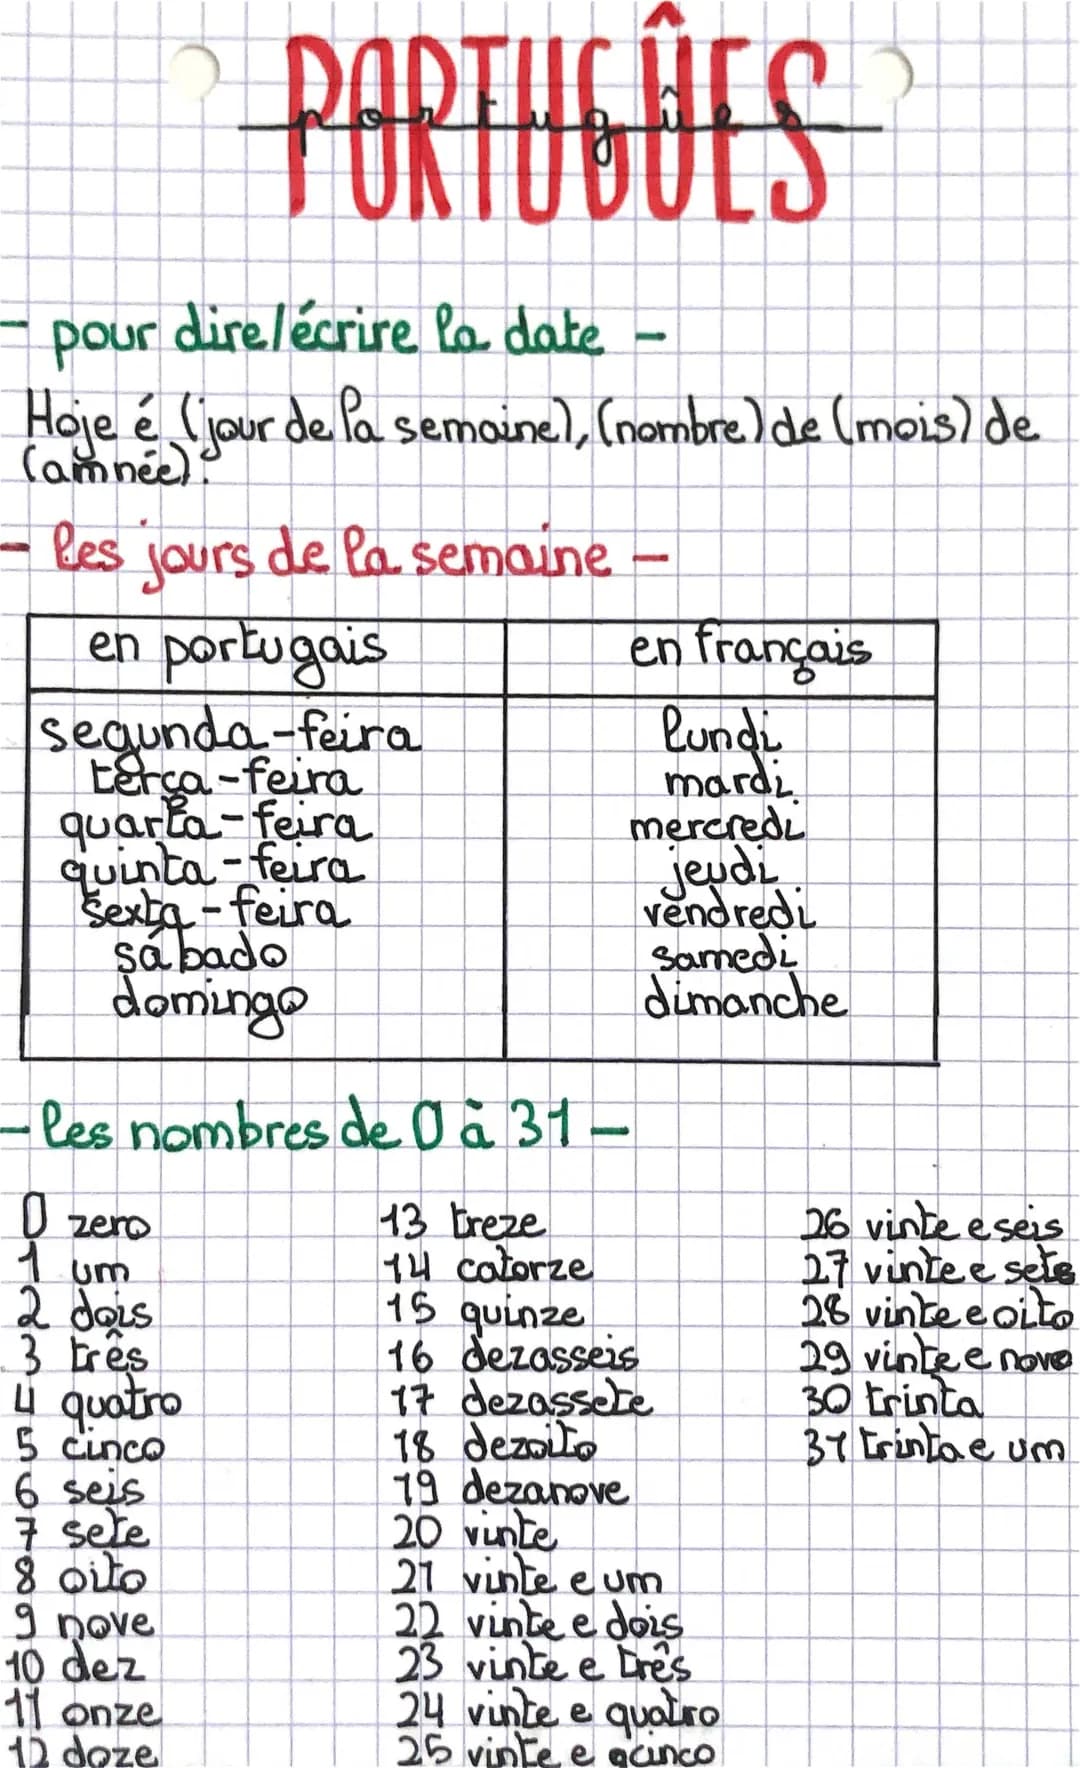 PORTUGÛES
portugûes
- pour dire/écrire la date -
Hoje é (jour de la semaine), (nombre) de (mois) de
(année).
- les jours de la semaine -
en portugais en français
segunda-feira lundi
terça-feira mardi
quarta-feira mercredi
quinta-feira jeudi
sexta-feira vendredi
sábado samedi
domingo dimanche
- les nombres de 0 à 31 -
0 zero 13 treze 26 vinte e seis
1 um 14 catorze 27 vinte e sete
2 dois 15 quinze 28 vinte e oito
3 três 16 dezasseis 29 vinte e nove
4 quatro 17 dezassete 30 trinta
5 cinco 18 dezoito 31 trinta e um
6 seis 19 dezanove
7 sete 20 vinte
8 oito 21 vinte e um
9 nove 22 vinte e dois
10 dez 23 vinte e três
11 onze 24 vinte e quatro
12 doze 25 vinte e cinco